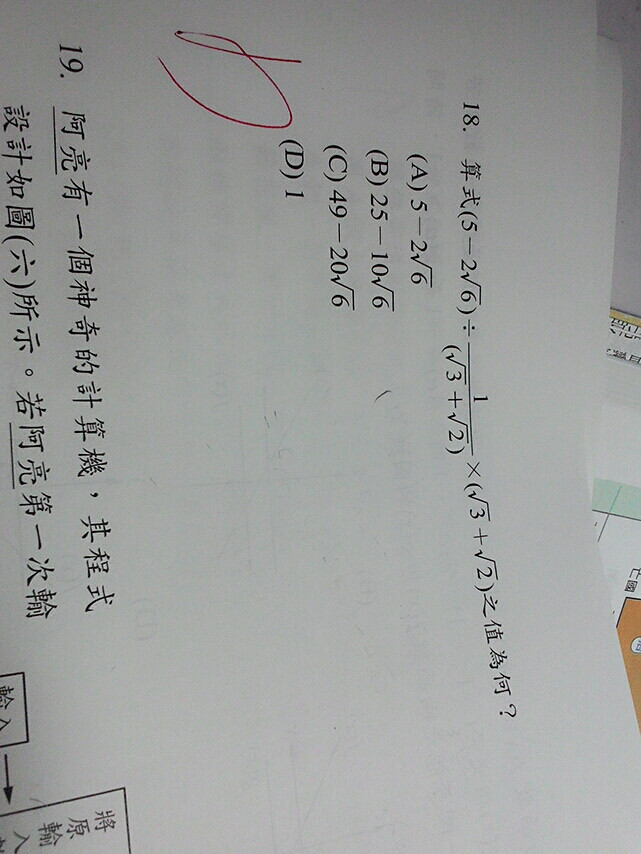 18. 算式(5－2√6)÷1/(√3＋√2)×(√3＋√2)之值為何？
(A) 5－2√6
(B) 25－10√6
(C) 49－20√6
(D) 1
19. 阿亮有一個神奇的計算機，其程式
設計如圖(六)所示。若阿亮第一次輸
輸入
將原
輸入
亡國